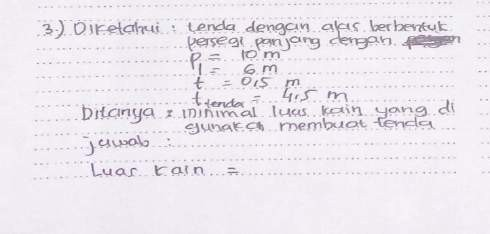 3.) Diketahui : tenda dengan alas berbentuk
persegi panjang dengan
p = 10 m
l = 6 m
t = 0,5 m
t tenda = 4,5 m
Ditanya : minimal luas kain yang di
gunakan membuat tenda
jawab :
Luas kain =